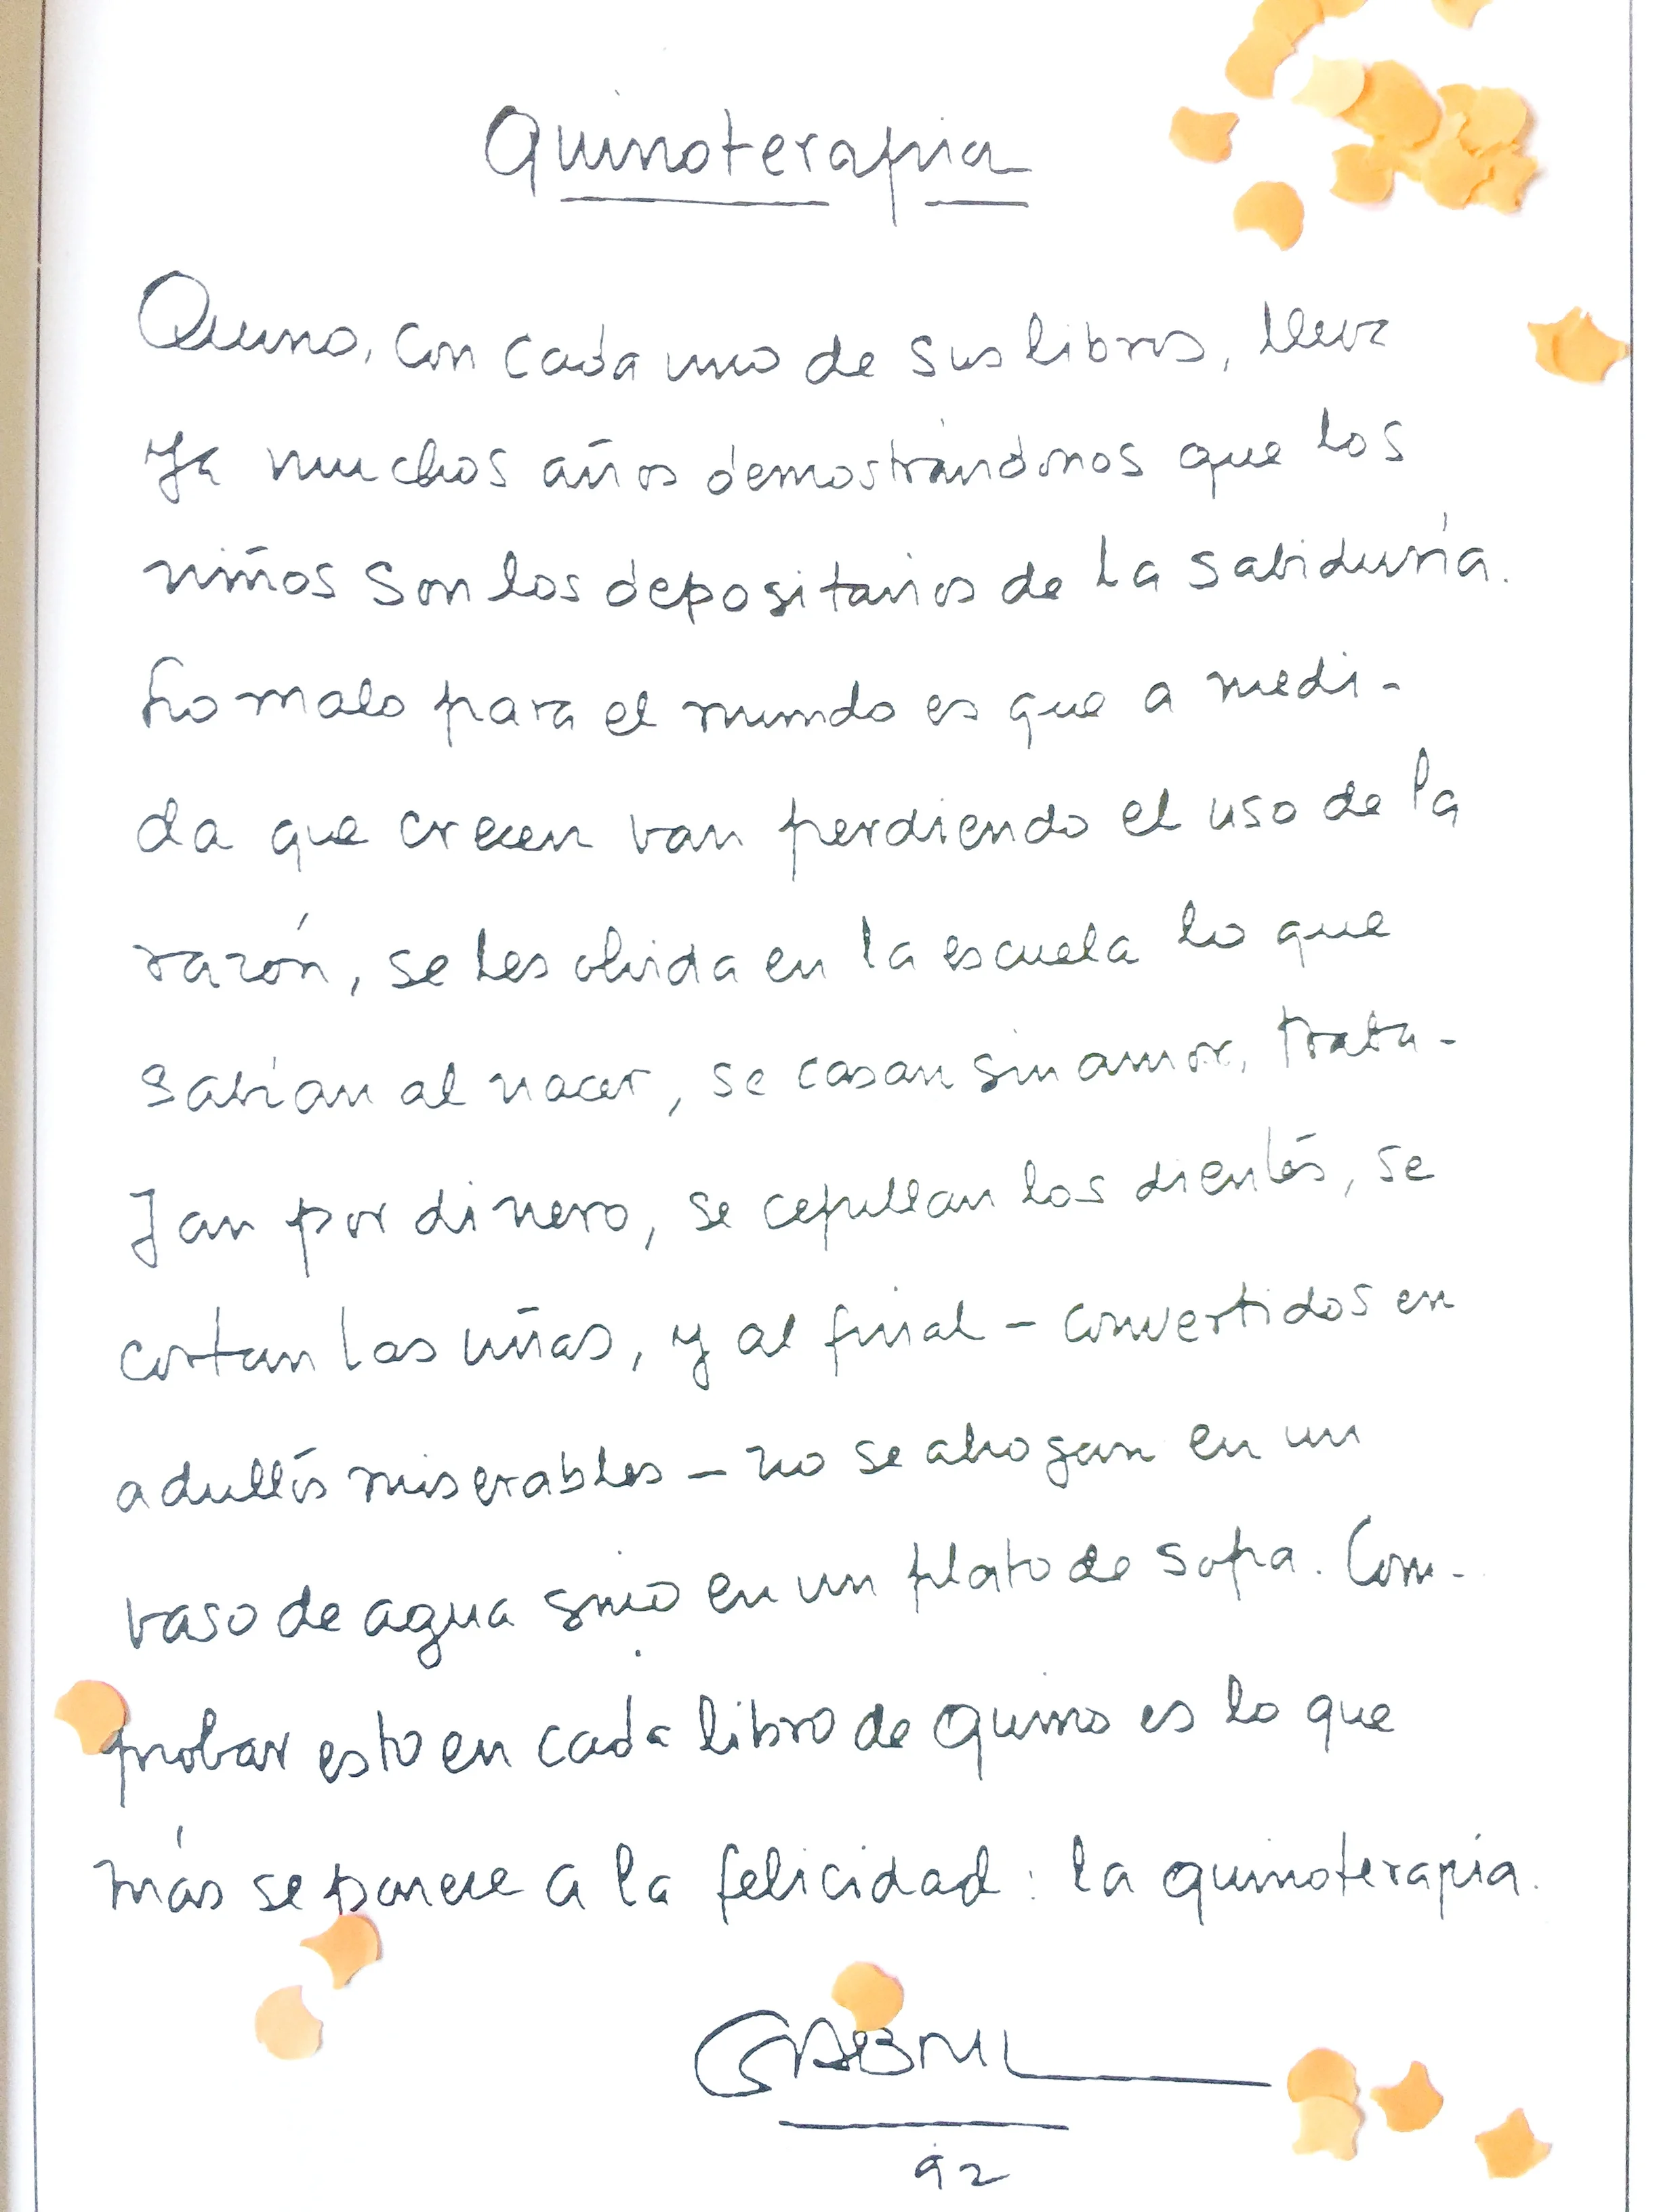 Quinoterapia
Quino, con cada uno de sus libros, lleva
ya muchos años demostrándonos que los
niños son los depositarios de la sabiduría.
Lo malo para el mundo es que a medi-
da que crecen van perdiendo el uso de la
razón, se les olvida en la escuela lo que
sabían al nacer, se casan sin amor, traba-
jan por dinero, se cepillan los dientes, se
cortan las uñas, y al final - convertidos en
adultos miserables - no se ahogan en un
vaso de agua sino en un plato de sopa. Com-
probar esto en cada libro de Quino es lo que
más se parece a la felicidad: la quinoterapia.
GABRIEL
92